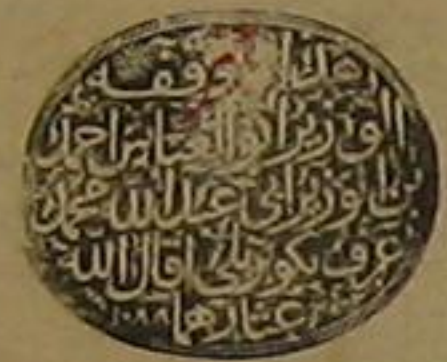 هذا مما وقفه
الوزير ابو العباس احمد
بن الوزير ابى عبد الله محمد
عرف بكوپريلى اقال الله
عثارهما ١٠٨٨